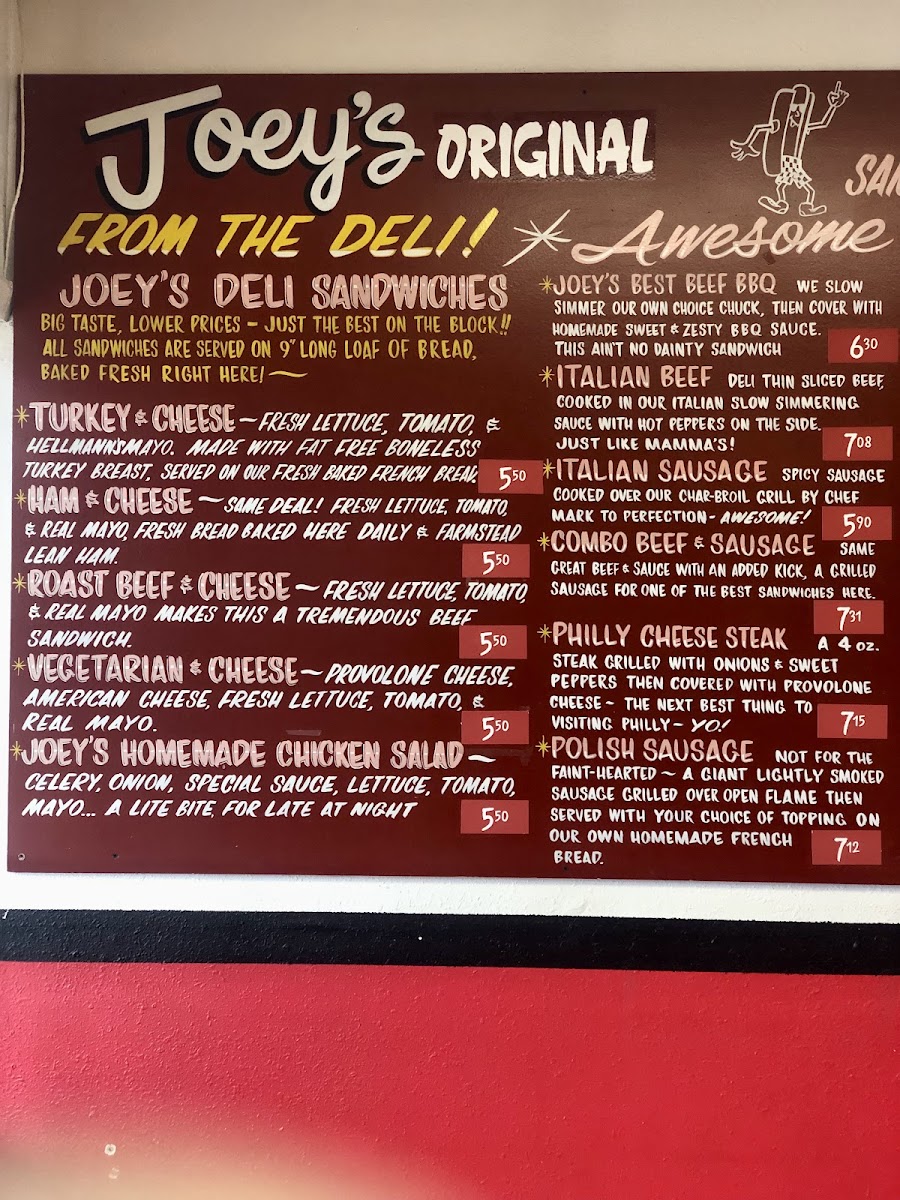 Joey's ORIGINAL
FROM THE DELI!
JOEY'S DELI SANDWICHES
BIG TASTE, LOWER PRICES - JUST THE BEST ON THE BLOCK!!
ALL SANDWICHES ARE SERVED ON 9" LONG LOAF OF BREAD,
BAKED FRESH RIGHT HERE!
*TURKEY & CHEESE ~ FRESH LETTUCE, TOMATO, &
HELLMANNSMAYO. MADE WITH FAT FREE BONELESS
TURKEY BREAST, SERVED ON OUR FRESH BAKED FRENCH BREAD.
5.50
*HAM & CHEESE ~ SAME DEAL! FRESH LETTUCE, TOMATO,
& REAL MAYO, FRESH BREAD BAKED HERE DAILY & FARMSTEAD
LEAN HAM.
5.50
*ROAST BEEF & CHEESE ~ FRESH LETTUCE, TOMATO,
& REAL MAYO MAKES THIS A TREMENDOUS BEEF
SANDWICH.
5.50
*VEGETARIAN & CHEESE ~ PROVOLONE CHEESE,
AMERICAN CHEESE, FRESH LETTUCE, TOMATO, &
REAL MAYO.
5.50
*JOEY'S HOMEMADE CHICKEN SALAD ~
CELERY, ONION, SPECIAL SAUCE, LETTUCE, TOMATO,
MAYO... A LITE BITE, FOR LATE AT NIGHT
5.50
Awesome
*JOEY'S BEST BEEF BBQ WE SLOW
SIMMER OUR OWN CHOICE CHUCK, THEN COVER WITH
HOMEMADE SWEET & ZESTY BBQ SAUCE.
THIS AIN'T NO DAINTY SANDWICH
6.30
*ITALIAN BEEF DELI THIN SLICED BEEF,
COOKED IN OUR ITALIAN SLOW SIMMERING
SAUCE WITH HOT PEPPERS ON THE SIDE.
JUST LIKE MAMMA'S!
7.08
*ITALIAN SAUSAGE SPICY SAUSAGE
COOKED OVER OUR CHAR-BROIL GRILL BY CHEF
MARK TO PERFECTION - AWESOME!
5.90
*COMBO BEEF & SAUSAGE SAME
GREAT BEEF & SAUCE WITH AN ADDED KICK, A GRILLED
SAUSAGE FOR ONE OF THE BEST SANDWICHES HERE.
7.31
*PHILLY CHEESE STEAK A 4 OZ.
STEAK GRILLED WITH ONIONS & SWEET
PEPPERS THEN COVERED WITH PROVOLONE
CHEESE ~ THE NEXT BEST THING TO
VISITING PHILLY ~ YO!
7.15
*POLISH SAUSAGE NOT FOR THE
FAINT-HEARTED ~ A GIANT LIGHTLY SMOKED
SAUSAGE GRILLED OVER OPEN FLAME THEN
SERVED WITH YOUR CHOICE OF TOPPING ON
OUR OWN HOMEMADE FRENCH
BREAD.
7.12